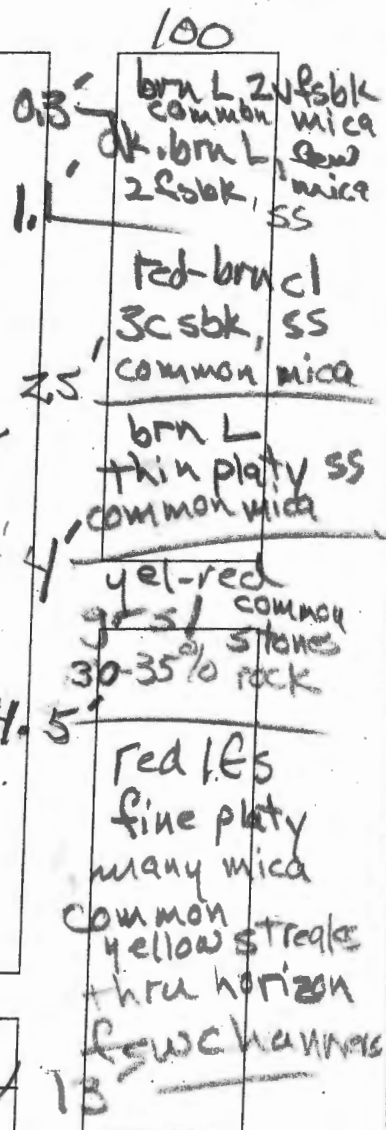 100
brn L, 2vfsbk
common mica
0.3'
dk.brn L, few
2fsbk, mica
ss
1.1'
red-brn cl
3csbk, ss
common mica
2.5'
brn L
thin platy ss
common mica
4'
yel-red
common
gr sl
stones
30-35% rock
4.5'
red lfs
fine platy
many mica
common
yellow streaks
thru horizon
few channers
13'